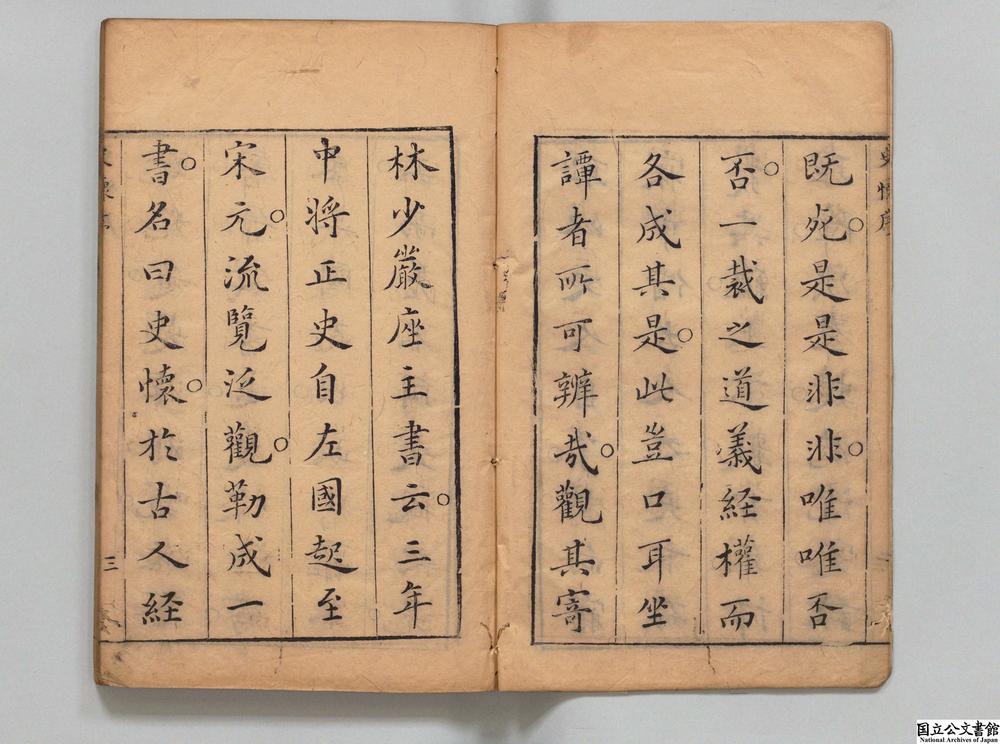 既死是是非非唯唯否
否一裁之道義経權而
各成其是此豈口耳坐
譚者所可辨哉觀其寄
林少巖座主書云三年
中將正史自左國起至
宋元流覽泛觀勒成一
書名曰史懷於古人経
三
国立公文書館
National Archives of Japan